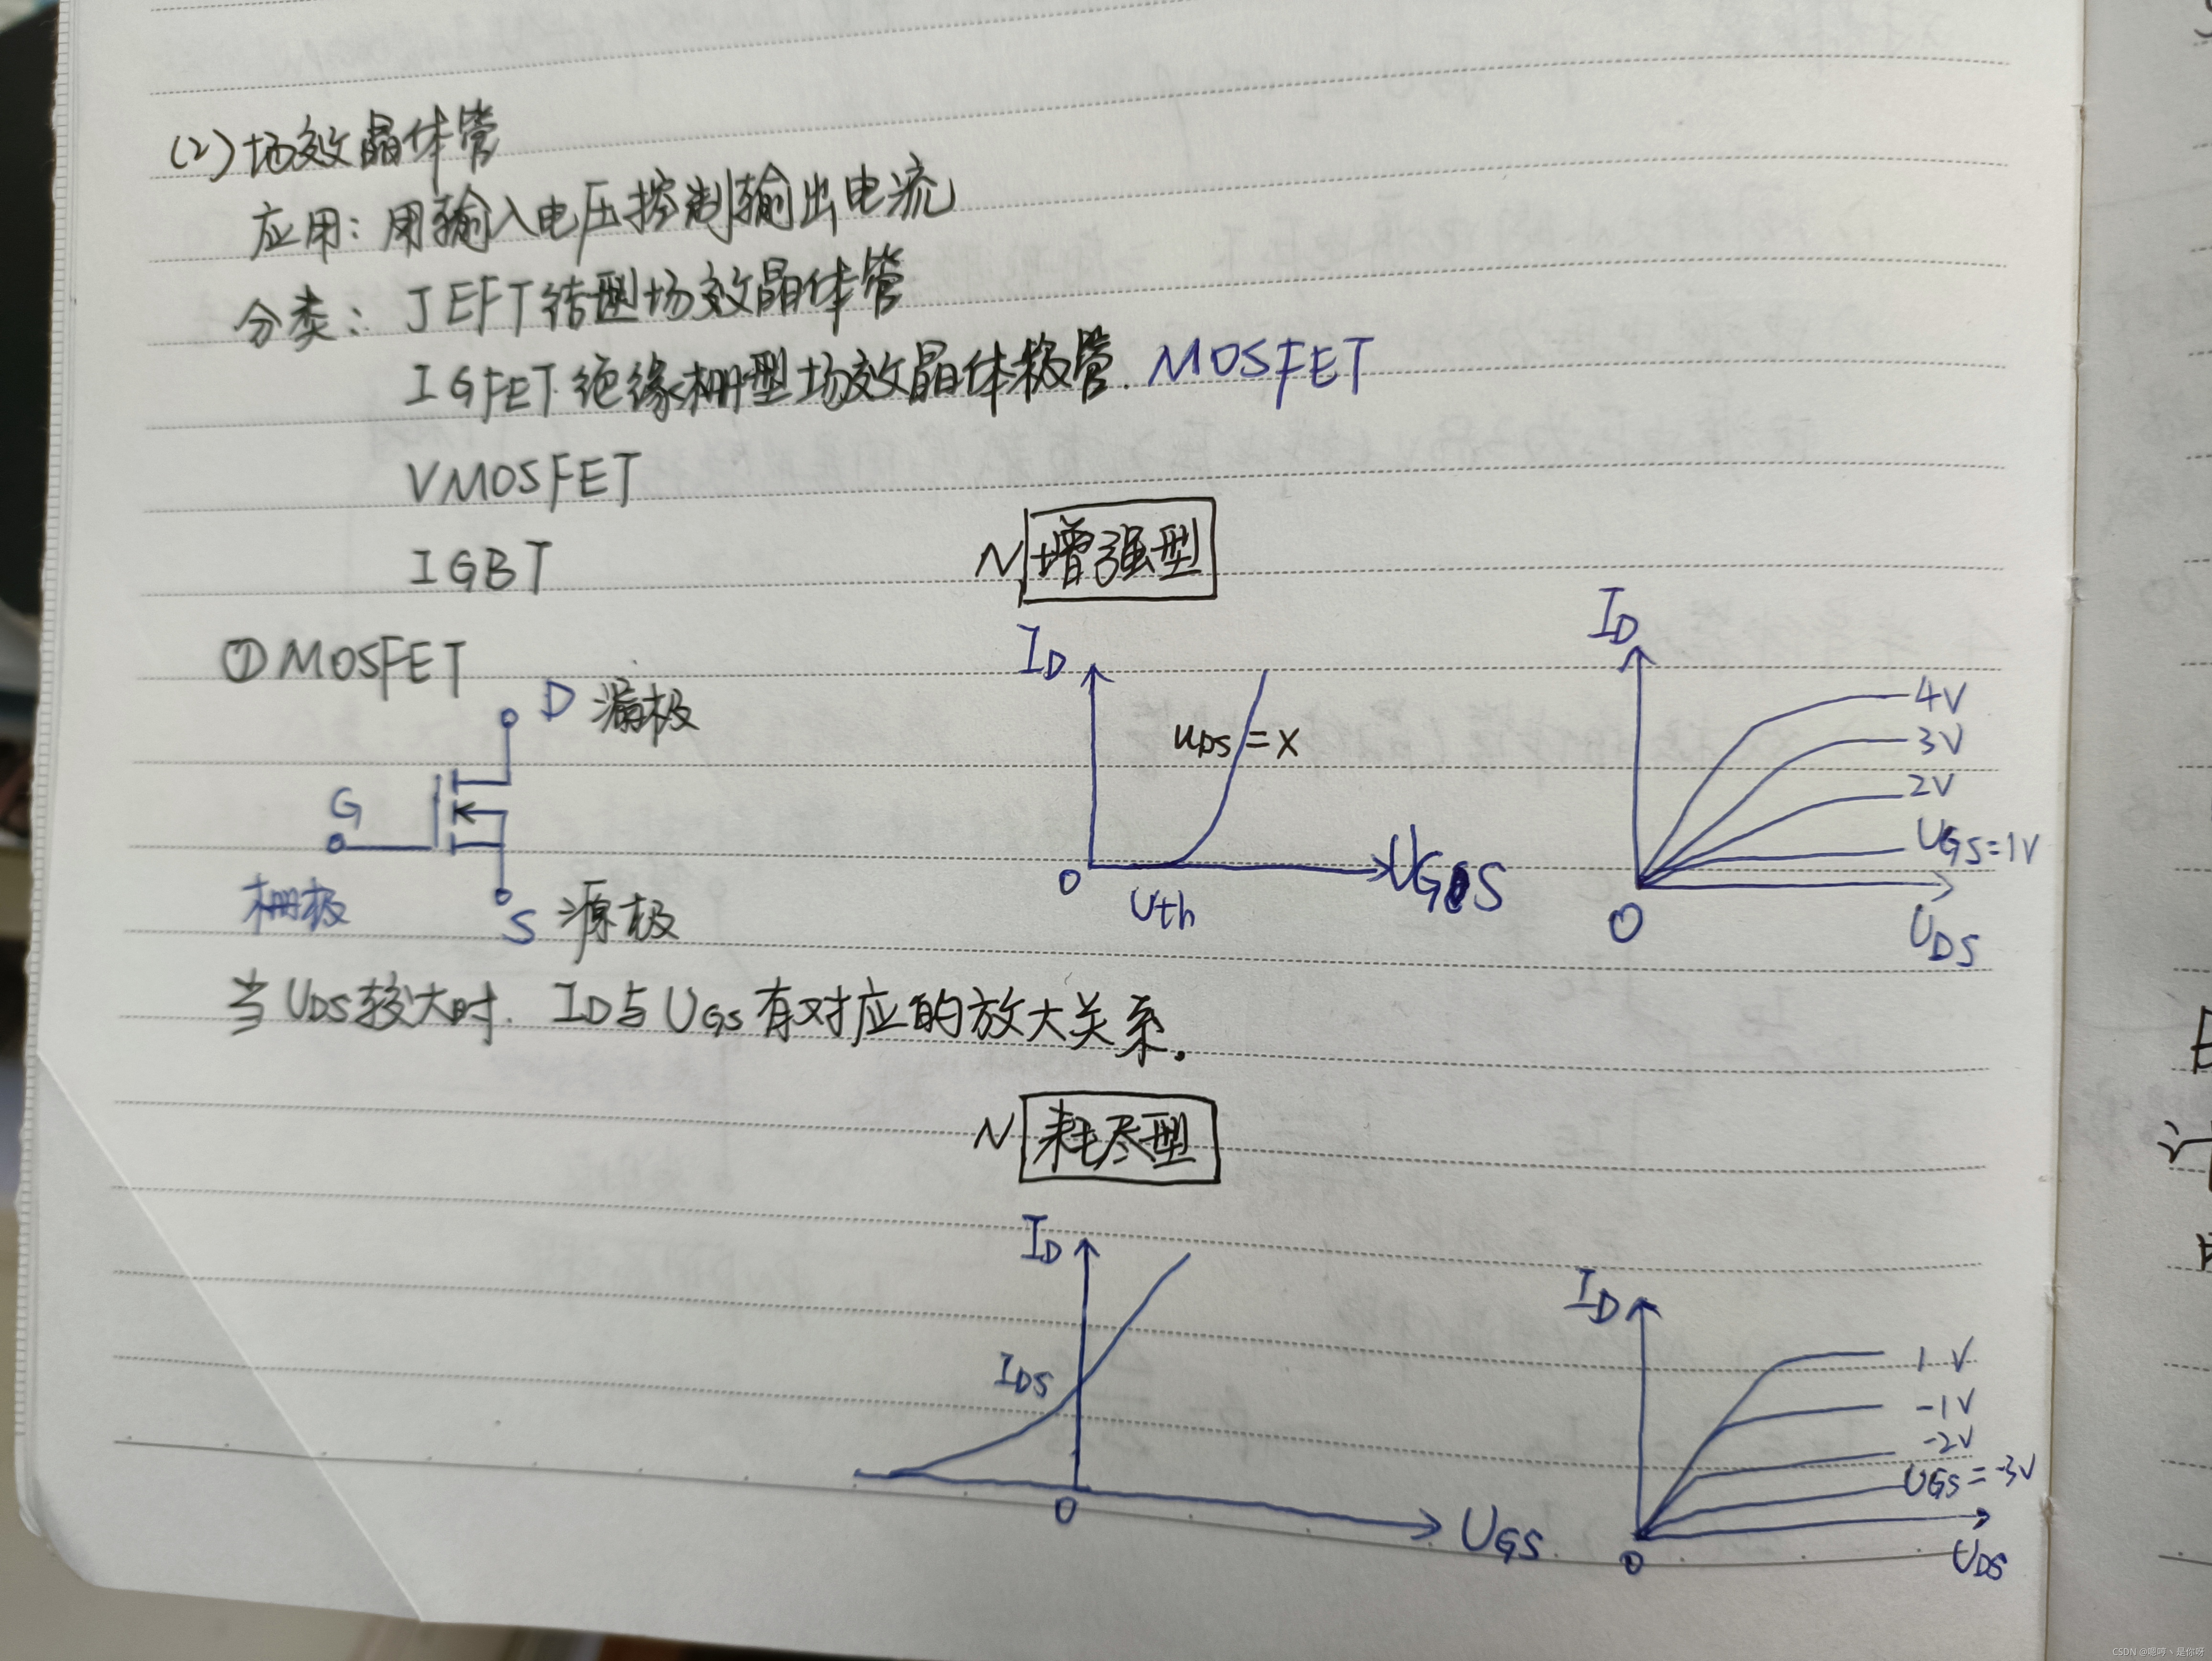 (2) 场效晶体管
应用：用输入电压控制输出电流
分类：JEFT 结型场效晶体管
IGFET 绝缘栅型场效晶体极管. MOSFET
VMOSFET
IGBT
N 增强型
① MOSFET
D 漏极
G
栅极
S 源极
ID
UDS = X
O
Uth
UGS
ID
4V
3V
2V
UGS=1V
O
UDS
当 UDS 较大时. ID与 UGS 有对应的放大关系.
N 耗尽型
ID
IDS
O
UGS.
ID
1V
-1V
-2V
UGS=-3V
O
UDS
CSDN @嗯哼丶是你呀